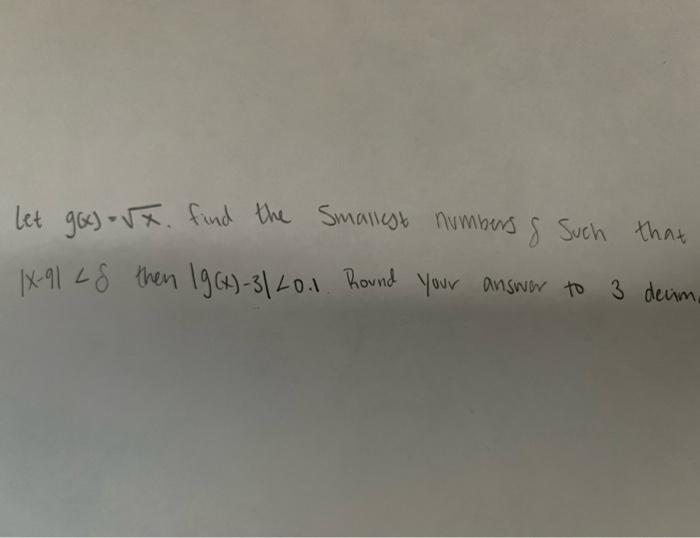 Let g(x) = √x. find the Smallest numbers δ Such that
|x-9| < δ then |g(x)-3| < 0.1. Round your answer to 3 decim